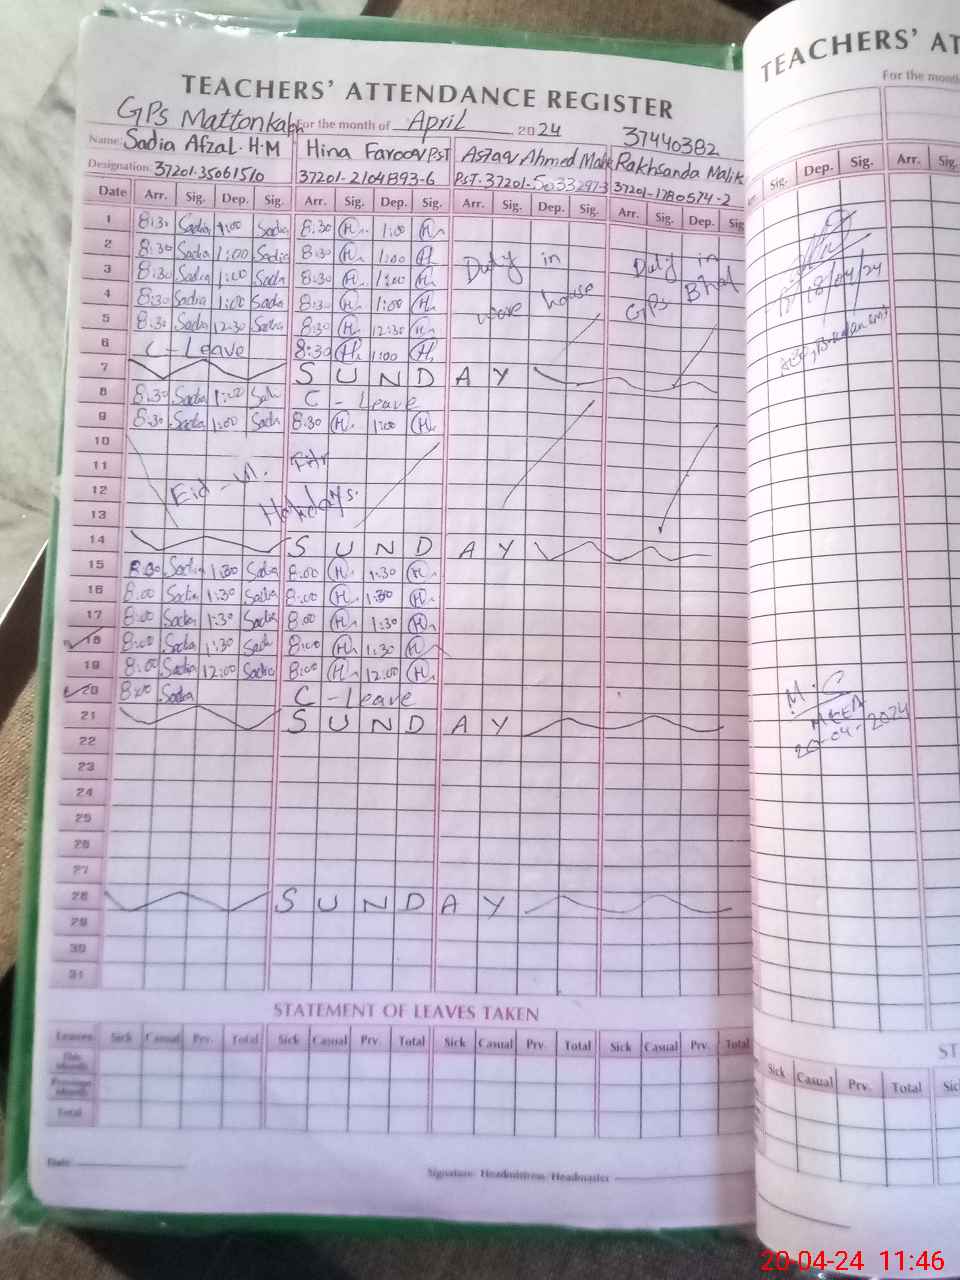 TEACHERS' ATTENDANCE REGISTER
GPS Mattonkalan For the month of April 2024 37440382
Name: Sadia Afzal. H.M Hina Farooq PST Ahmed Malik Rakhsanda Malik
Designation: 37201-3506151 37201-2104893-6 PST. 37201- 37201-1780574-2
Date Arr. Sig. Dep. Sig. Arr. Sig. Dep. Sig. Arr. Sig. Dep. Sig. Arr. Sig. Dep. Sig
1 8:30 Sadia 1:00 Sadia 8:30 H. 1:00 H.
2 8:30 Sadia 1:00 Sadia 8:30 H. 1:00 H. Duty in Duty in
3 8:30 Sadia 1:00 Sadia 8:30 H. 1:00 H.
4 8:30 Sadia 1:00 Sadia 8:30 H. 1:00 H. ware house GPS Bhal
5 8:30 Sadia 12:30 Sadia 8:30 H. 12:30 H.
6 C-Leave 8:30 H. 1:00 H.
7 S U N D A Y
8 8:30 Sadia 1:00 Sadia C - Leave
9 8:30 Sadia 1:00 Sadia 8:30 H. 1:00 H.
10
11 Eid-ul. Fitr
12 Holidays.
13
14 S U N D A Y
15 8:30 Sadia 1:30 Sadia 8:00 H. 1:30 H.
16 8:00 Sadia 1:30 Sadia 8:00 H. 1:30 H.
17 8:00 Sadia 1:30 Sadia 8:00 H. 1:30 H.
18 8:00 Sadia 1:30 Sadia 8:00 H. 1:30 H.
19 8:00 Sadia 12:00 Sadia 8:00 H. 12:00 H.
20 8:00 Sadia C - Leave
21 S U N D A Y
22
23
24
25
26
27
28 S U N D A Y
29
30
31
STATEMENT OF LEAVES TAKEN
Leaves Sick Casual Prv. Total Sick Casual Prv. Total Sick Casual Prv. Total Sick Casual Prv. Total
This Month
Previous Month
Total
Date:
Signature: Headmistress/Headmaster
TEACHERS' AT
For the month
Sig. Dep. Sig. Arr. Sig.
18/04/24
M.C
MEEA
20-04-2024
ST
Sick Casual Prv. Total Sic
20-04-24 11:46